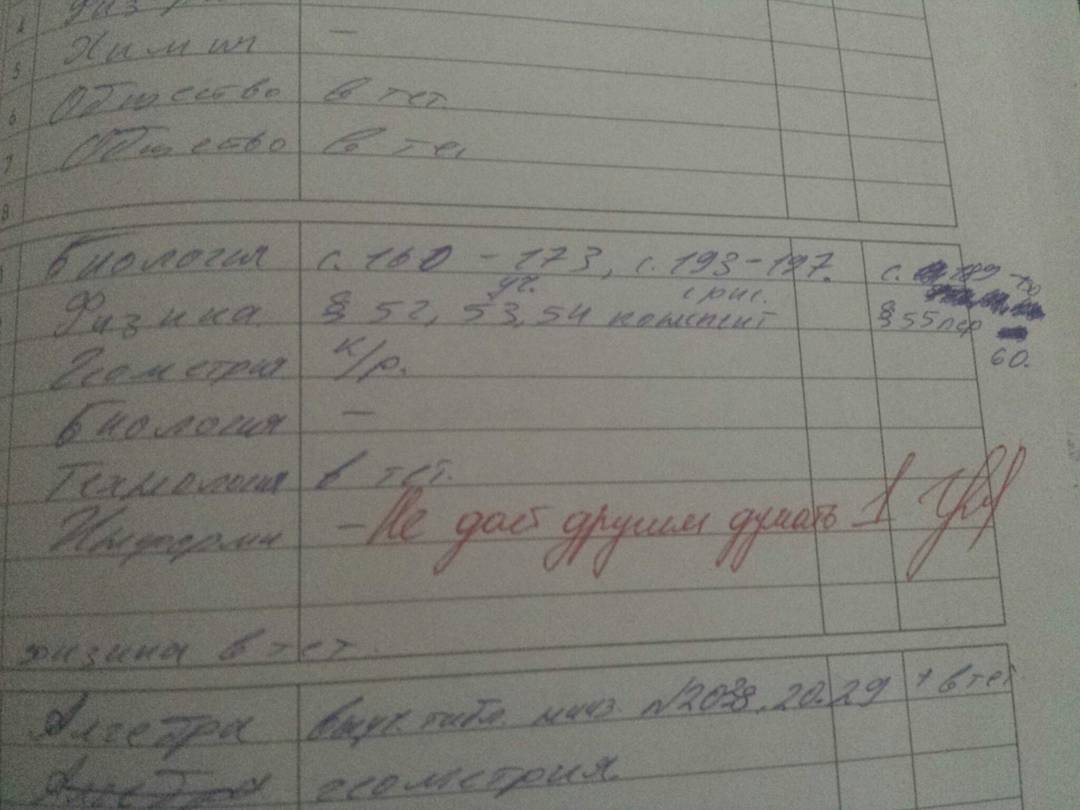 4 физ
5 Химия —
6 Общество в тет.
7 Общество в тет
8.
Биология с. 160 - 173, с. 193-197. с. 189 то
уч. с рис.
Физика § 52, 53, 54 конспект § 55 пер
60.
Геометрия к/р.
Биология —
Технология в тет.
Информ — Не дает другим думать 1
физика в тет.
Алгебра № 20.28, 20.29 + в тет
Алгебра геометрия.